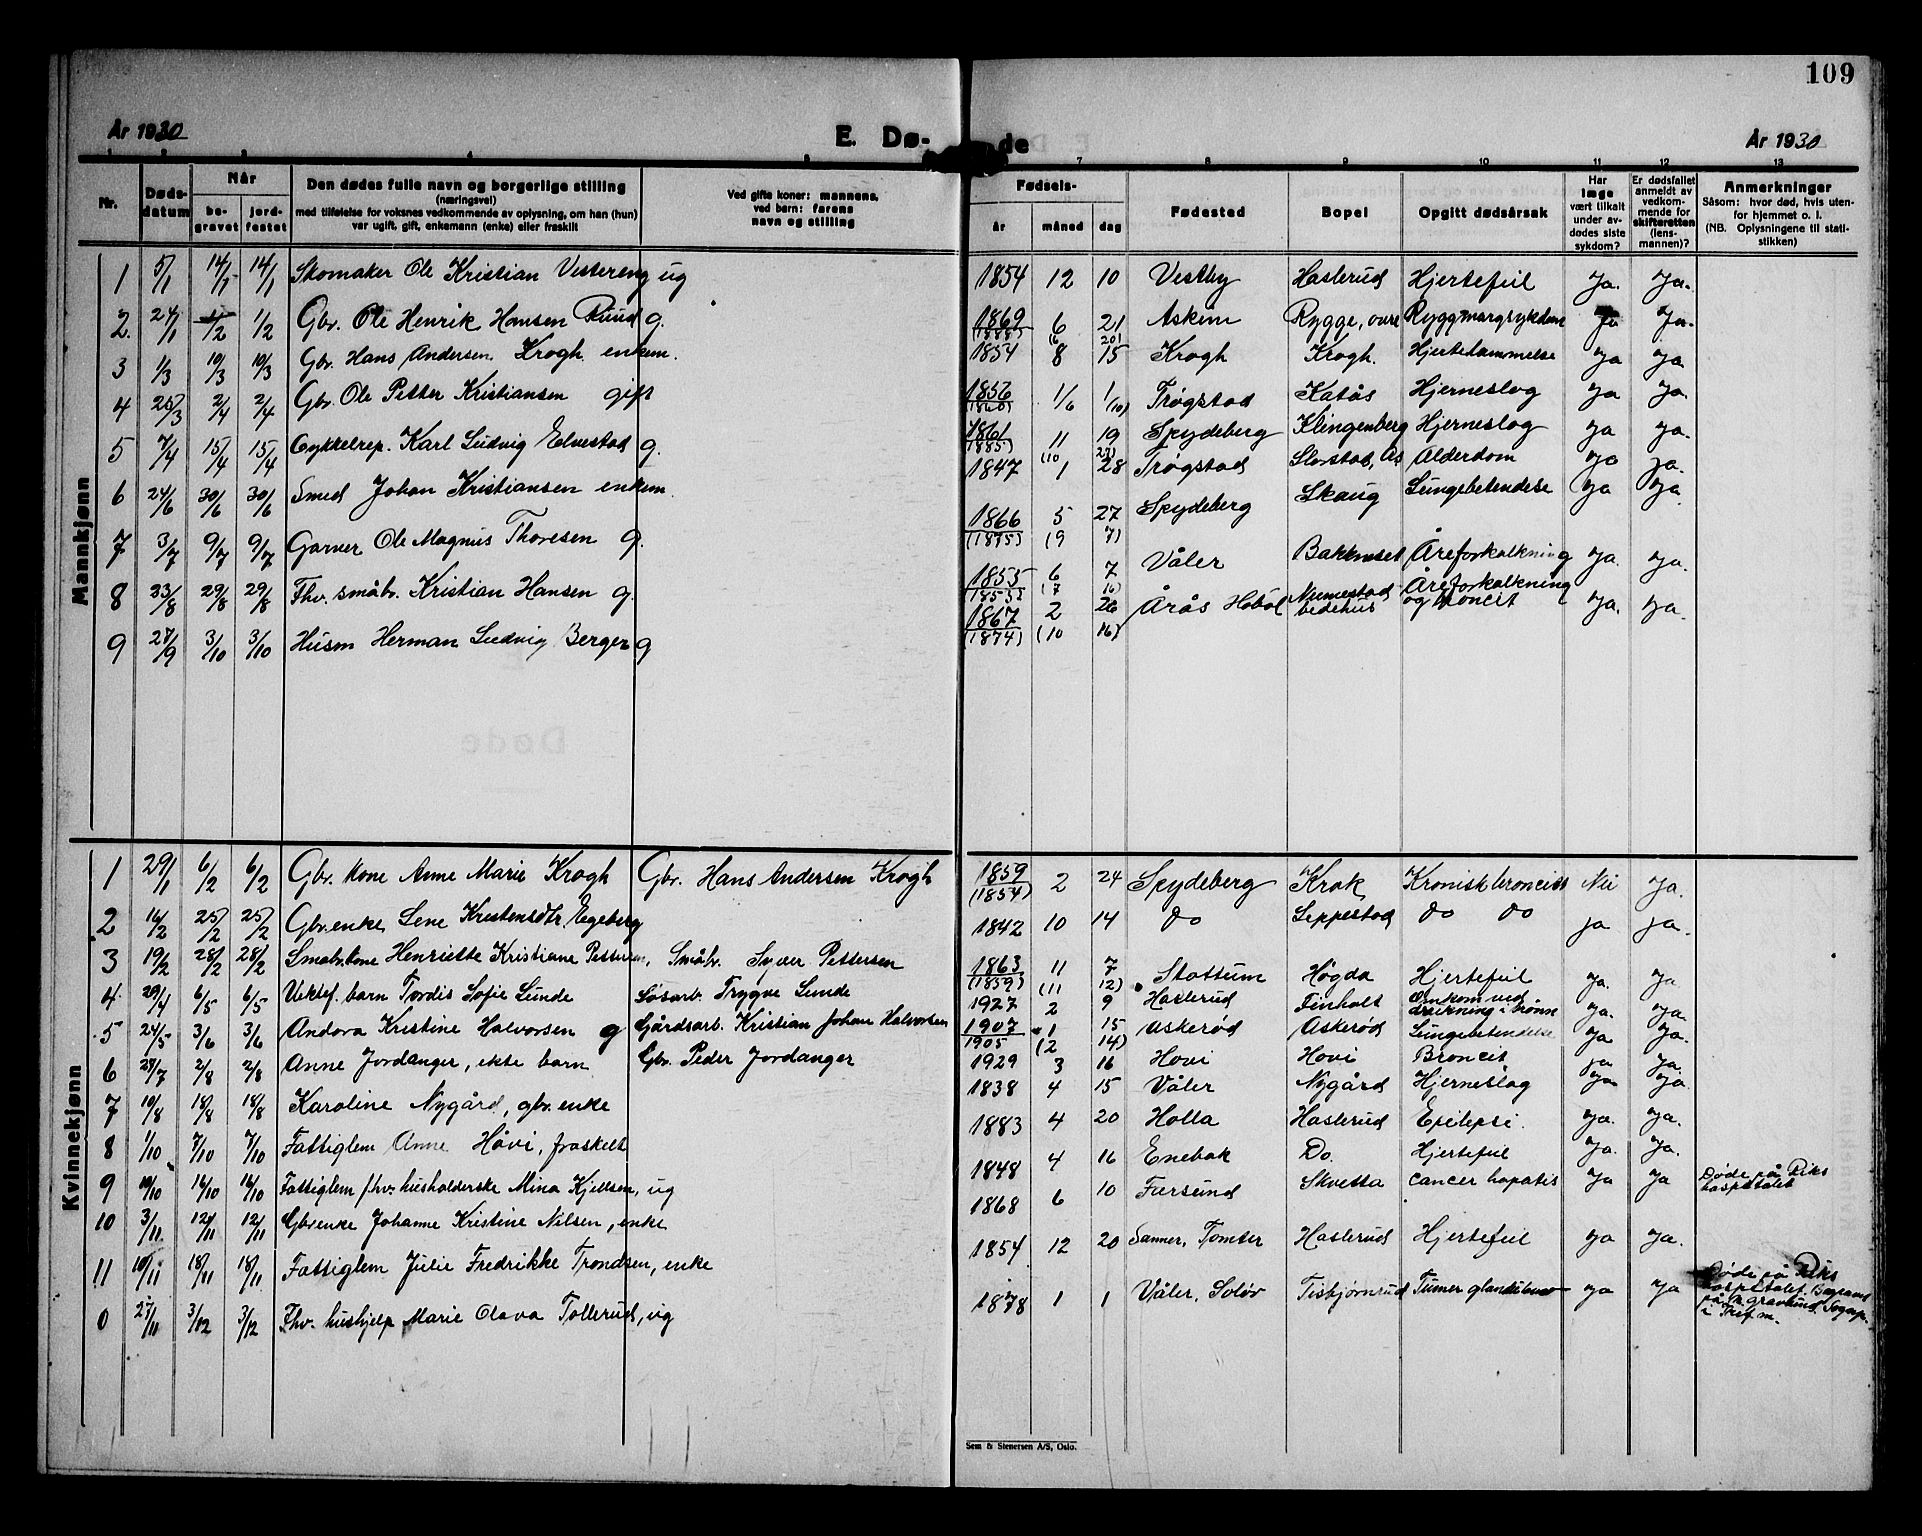 109
År 1930
E. Dø-
de
År 1930
1 2 3 4 5 7 8 9 10 11 12 13
Nr.
Døds-
datum
Når
be-
gravet
jord-
festet
Den dødes fulle navn og borgerlige stilling
(næringsvei)
med tilføielse for voksnes vedkommende av oplysning, om han (hun)
var ugift, gift, enkemann (enke) eller fraskilt
Ved gifte koner: mannens,
ved barn: farens
navn og stilling
Fødsels-
år
måned
dag
Fødested
Bopel
Opgitt dødsårsak
Har
læge
vært tilkalt
under av-
dødes siste
sykdom?
Er dødsfallet
anmeldt av
vedkom-
mende for
skifteretten
(lens-
mannen)?
Anmerkninger
Såsom: hvor død, hvis uten-
for hjemmet o. l.
(NB. Oplysningene til stati-
stikken)
Mannkjønn
1 5/1 14/1 14/1 Skomaker Ole Kristian Vestereng ug 1854 12 10 Vestby Haslerud Hjertefeil Ja. Ja.
2 1/2 1/2 Gbr. Ole Henrik Hansen Ruud g. 1869 6 21 Askim Rygge, øvre Ryggmargsykdom Ja Ja.
(1888) (6 20)
3 1/3 10/3 10/3 Gbr. Hans Andersen Krogh enkem. 1854 8 15 Krogh Krogh. Hjertelammelse Ja Ja.
4 25/3 2/4 2/4 Gbr. Ole Petter Kristiansen gift 1856 1/6 1/(10) Trøgstad Katås Hjerneslag Ja Ja.
(1860)
5 7/4 15/4 15/4 Cykkelrep. Karl Ludvig Elvestad g. 1861 11 19 Spydeberg Klingenberg Hjerneslag Ja Ja.
(1885) (10 27)
6 24/6 30/6 30/6 Smed Johan Kristiansen enkem. 1847 1 28 Trøgstad Alderdom Ja Ja.
Skaug Lungebetendelse Ja Ja.
7 3/7 9/7 9/7 Garver Ole Magnus Thoresen g. 1866 5 27 Spydeberg
(1895) (9 7)
Bakkeset Åreforkalkning Ja. Ja.
8 23/8 29/8 29/8 Fhv. småbr. Kristian Hansen g. 1855 6 7 Våler
(7 16)
Åreforkalkning
og broncit Ja. Ja.
9 27/9 3/10 3/10 Husm Herman Ludvig Berger g 1867 2 26 Årås Hobøl bedehus
(1874) (10 16)
Kvinnekjønn
1 29/1 6/2 6/2 Gbr. kone Anne Marie Krogh Gbr. Hans Andersen Krogh 1859 2 24 Spydeberg Krok Kronisk broncitt Nei Ja.
(1854)
2 16/2 25/2 25/2 Gbr. enke Lene Kristensdtr. Egeberg 1842 10 14 Do Leppestad Do Do Ja Ja.
3 19/2 28/2 28/2 Småbr. kone Henriette Kristiane Pettersen, Småbr. Syver Pettersen 1863 11 7 Stottum Høgda Hjertefeil Ja. Ja
(1859) (11 12)
4 29/4 6/5 6/5 Uektef. barn Tordis Sofie Lunde Løsarb. Trygve Lunde 1927 2 9 Haslerud Finholt Omkom ved
drukning i brønn Ja. Ja.
5 24/5 3/6 3/6 Andora Kristine Halvorsen g Gårdsarb. Kristian Johan Halvorsen 1907 1 15 Askerød Askerød Lungebetendelse Ja Ja.
1905 (2 14)
6 28/7 2/8 2/8 Anne Jordanger, ekte barn Gbr. Peder Jordanger 1929 3 16 Hovi Hovi Broncit Ja Ja.
7 10/8 18/8 18/8 Karoline Nygård, gbr. enke 1838 4 15 Våler Nygård Hjerneslag Ja Ja.
8 1/10 7/10 7/10 Fattiglem Anne Håvi, fraskelt 1883 4 20 Holla Haslerud Epilepsi. Ja. Ja.
9 10/10 16/10 16/10 Fattiglem fhv. husholderske Mina Kjelsen, ug 1848 4 16 Enebak Do. Hjertefeil Ja. Ja.
10 3/11 12/11 12/11 Gbr. enke Johanne Kristine Nilsen, enke 1868 6 10 Farsund Skvetta Cancer hepatis Ja Ja Døde på Riks
hospitalet
11 10/11 18/11 18/11 Fattiglem Julie Fredrikke Trondsen, enke 1854 12 20 Sanner, Tomter Haslerud Hjertefeil Ja Ja.
0 27/11 3/12 3/12 Fhv. hushjelp Marie Olava Tollerud, ug 1878 1 1 Våler, Solør Tisbjørnrud Tumor Ja Ja Døde på Riks
hospitalet. Begravet
på gravlund
i
Sem & Stenersen A/S, Oslo.